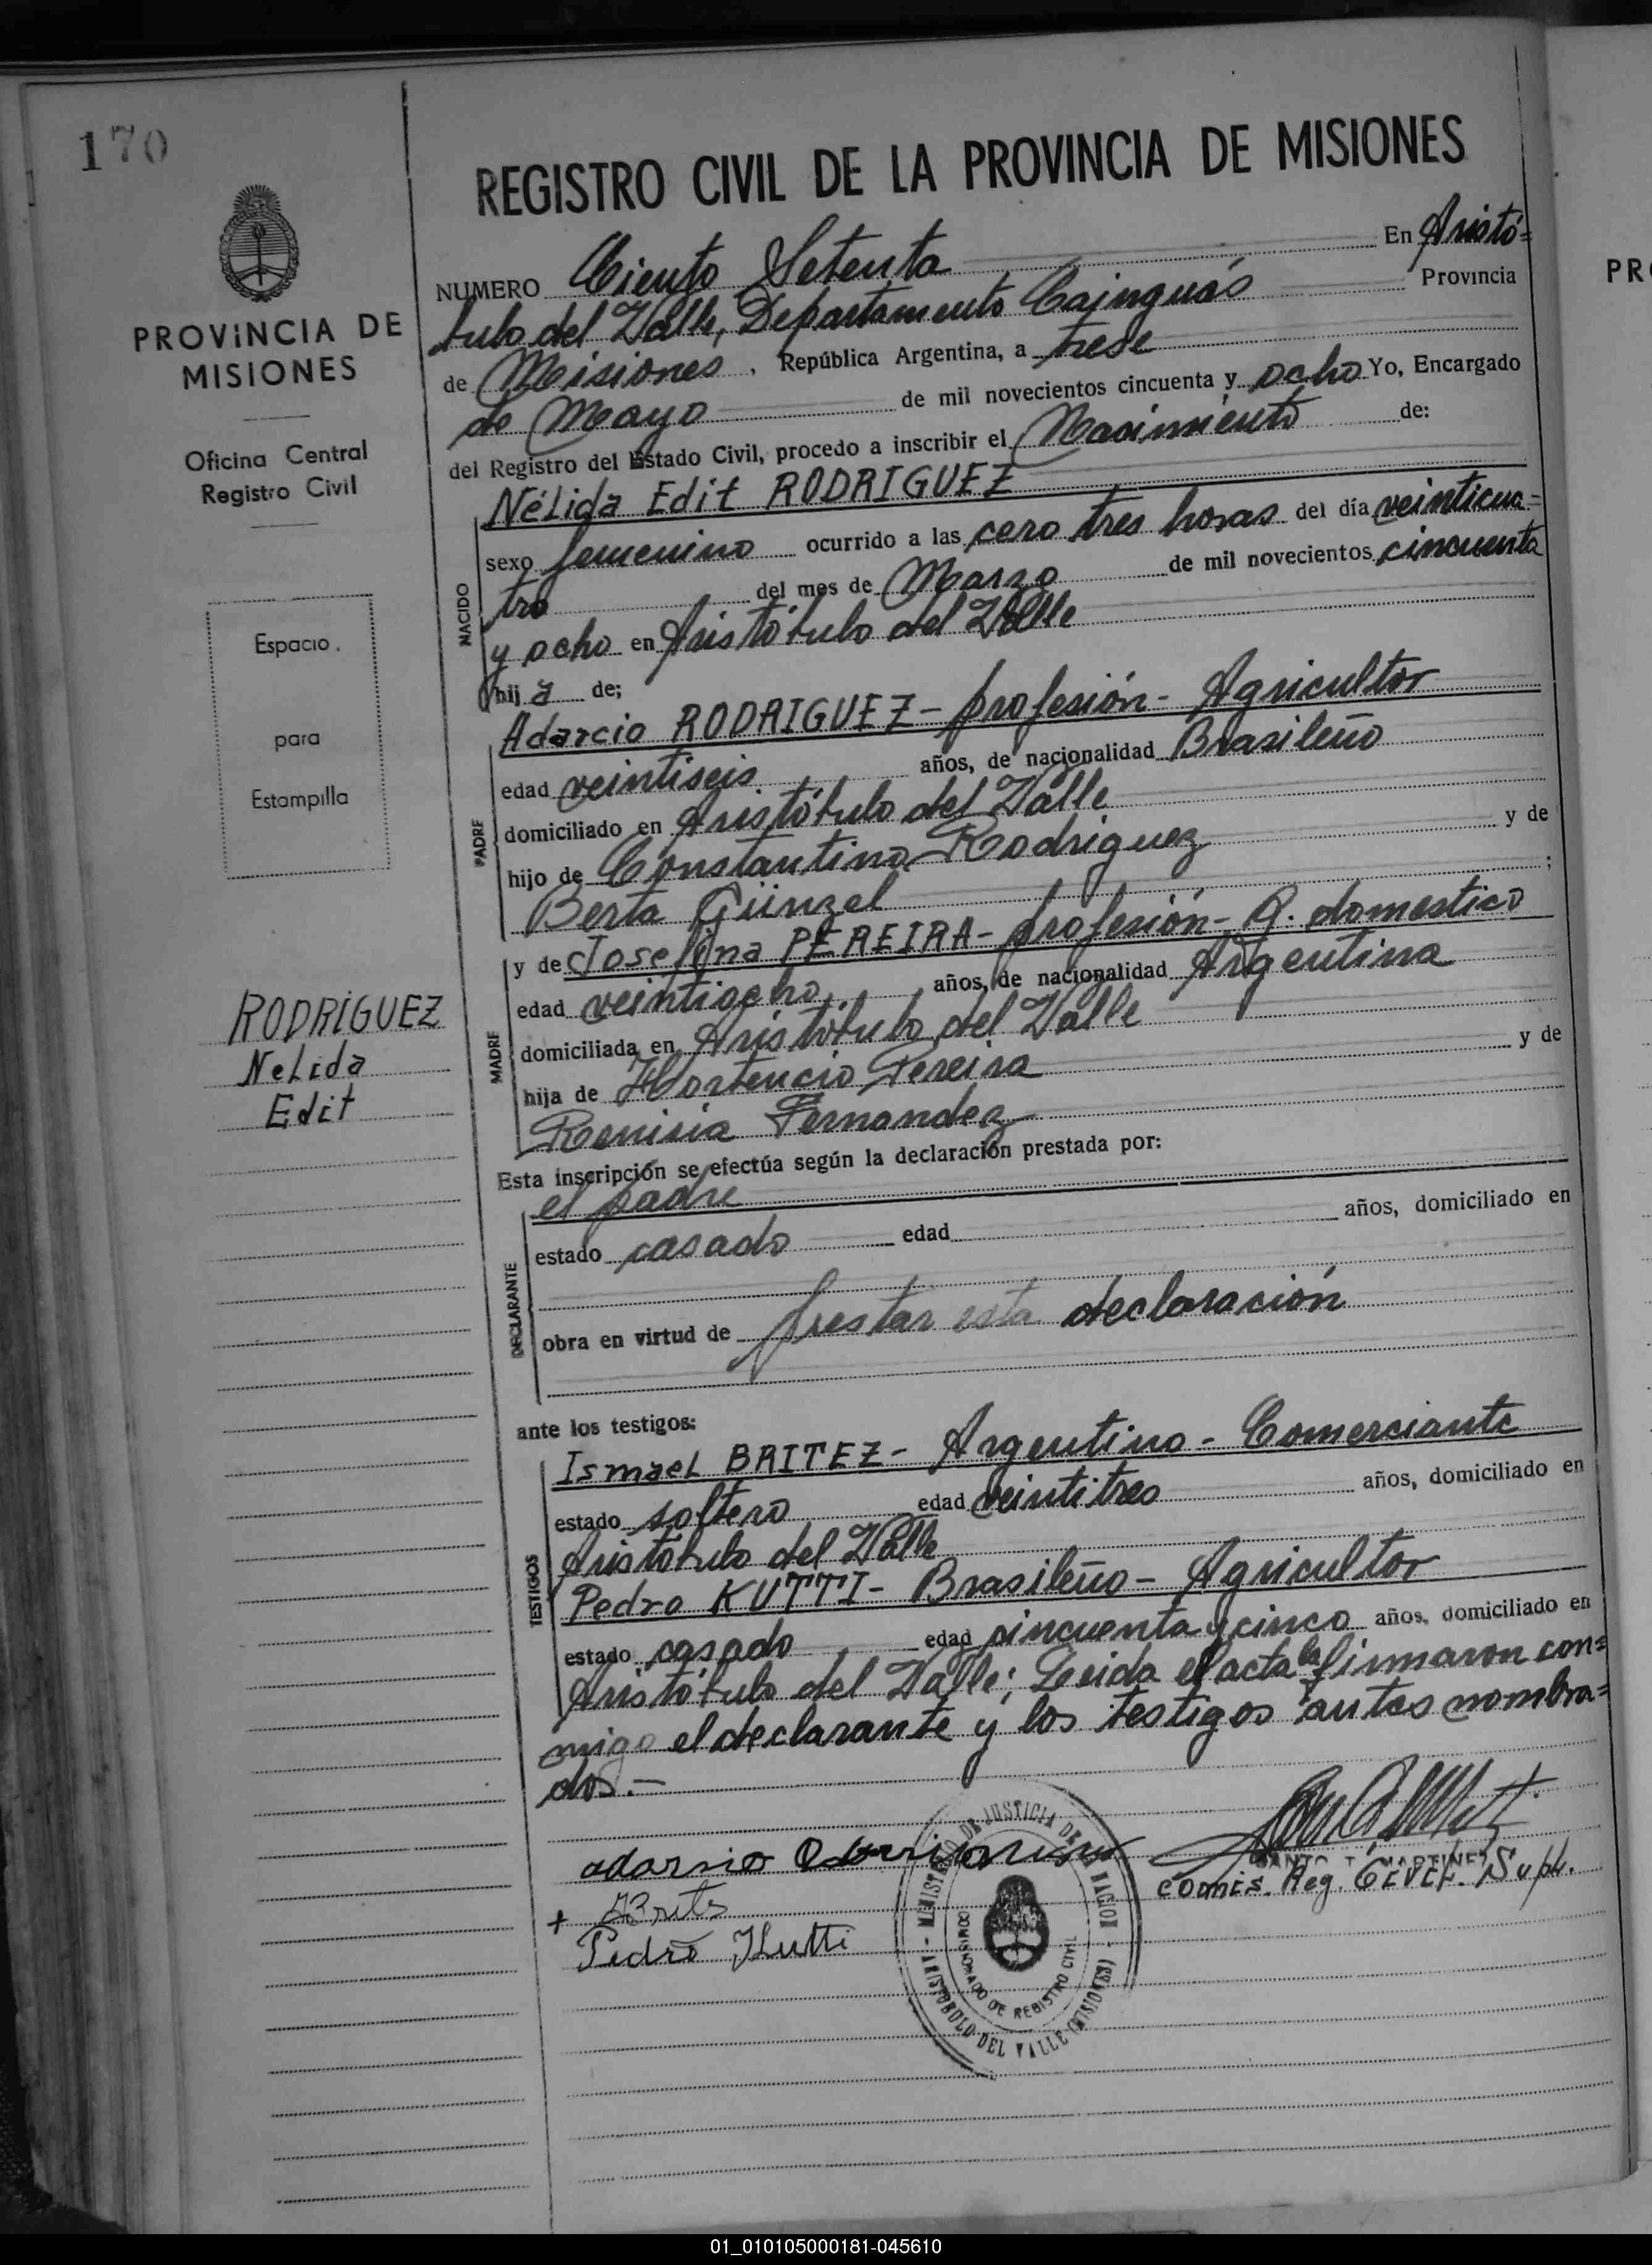 170
PROVINCIA DE
MISIONES
Oficina Central
Registro Civil
Espacio
para
Estampilla
RODRIGUEZ
Nelida
Edit
REGISTRO CIVIL DE LA PROVINCIA DE MISIONES
NUMERO Ciento Setenta En Aristó=
tulo del Valle, Departamento Cainguás Provincia
de Misiones, República Argentina, a trese
de Mayo de mil novecientos cincuenta y ocho Yo, Encargado
del Registro del Estado Civil, procedo a inscribir el Nacimiento de:
Nélida Edit RODRIGUEZ
NACIDO
sexo femenino ocurrido a las cero tres horas del día veinticua=
tro del mes de Marzo de mil novecientos cincuenta
y ocho en Aristótulo del Valle
hija de;
Adarcio RODRIGUEZ - profesión - Agricultor
PADRE
edad veintiseis años, de nacionalidad Brasileño
domiciliado en Aristótulo del Valle
hijo de Constantino Rodriguez y de
Berta Günzel ;
y de Joselina PEREIRA - profesión - Q. domestico
MADRE
edad veintiocho años, de nacionalidad Argentina
domiciliada en Aristótulo del Valle
hija de Hortencio Pereira y de
Fernandez
Esta inscripción se efectúa según la declaración prestada por:
el padre
DECLARANTE
estado casado edad años, domiciliado en
obra en virtud de prestar esta declaración
ante los testigos:
Ismael BRITEZ - Argentino - Comerciante
TESTIGOS
estado soltero edad veintitres años, domiciliado en
Aristotulo del Valle
Pedro KUTTI - Brasileño - Agricultor
estado casado edad cincuenta y cinco años, domiciliado en
Aristótulo del Valle; Leida el acta la firmaron con=
migo el declarante y los testigos antes nombra=
dos.-
adarsio
+ Brits
Pedro Kutti
SANTO T. MARTINEZ
Comis. Reg. Civil. Supl.
MINISTERIO DE JUSTICIA DE LA NACION
COMISIONADO DE REGISTRO CIVIL
ARISTOBULO DEL VALLE (MISIONES)
PR
01_010105000181-045610